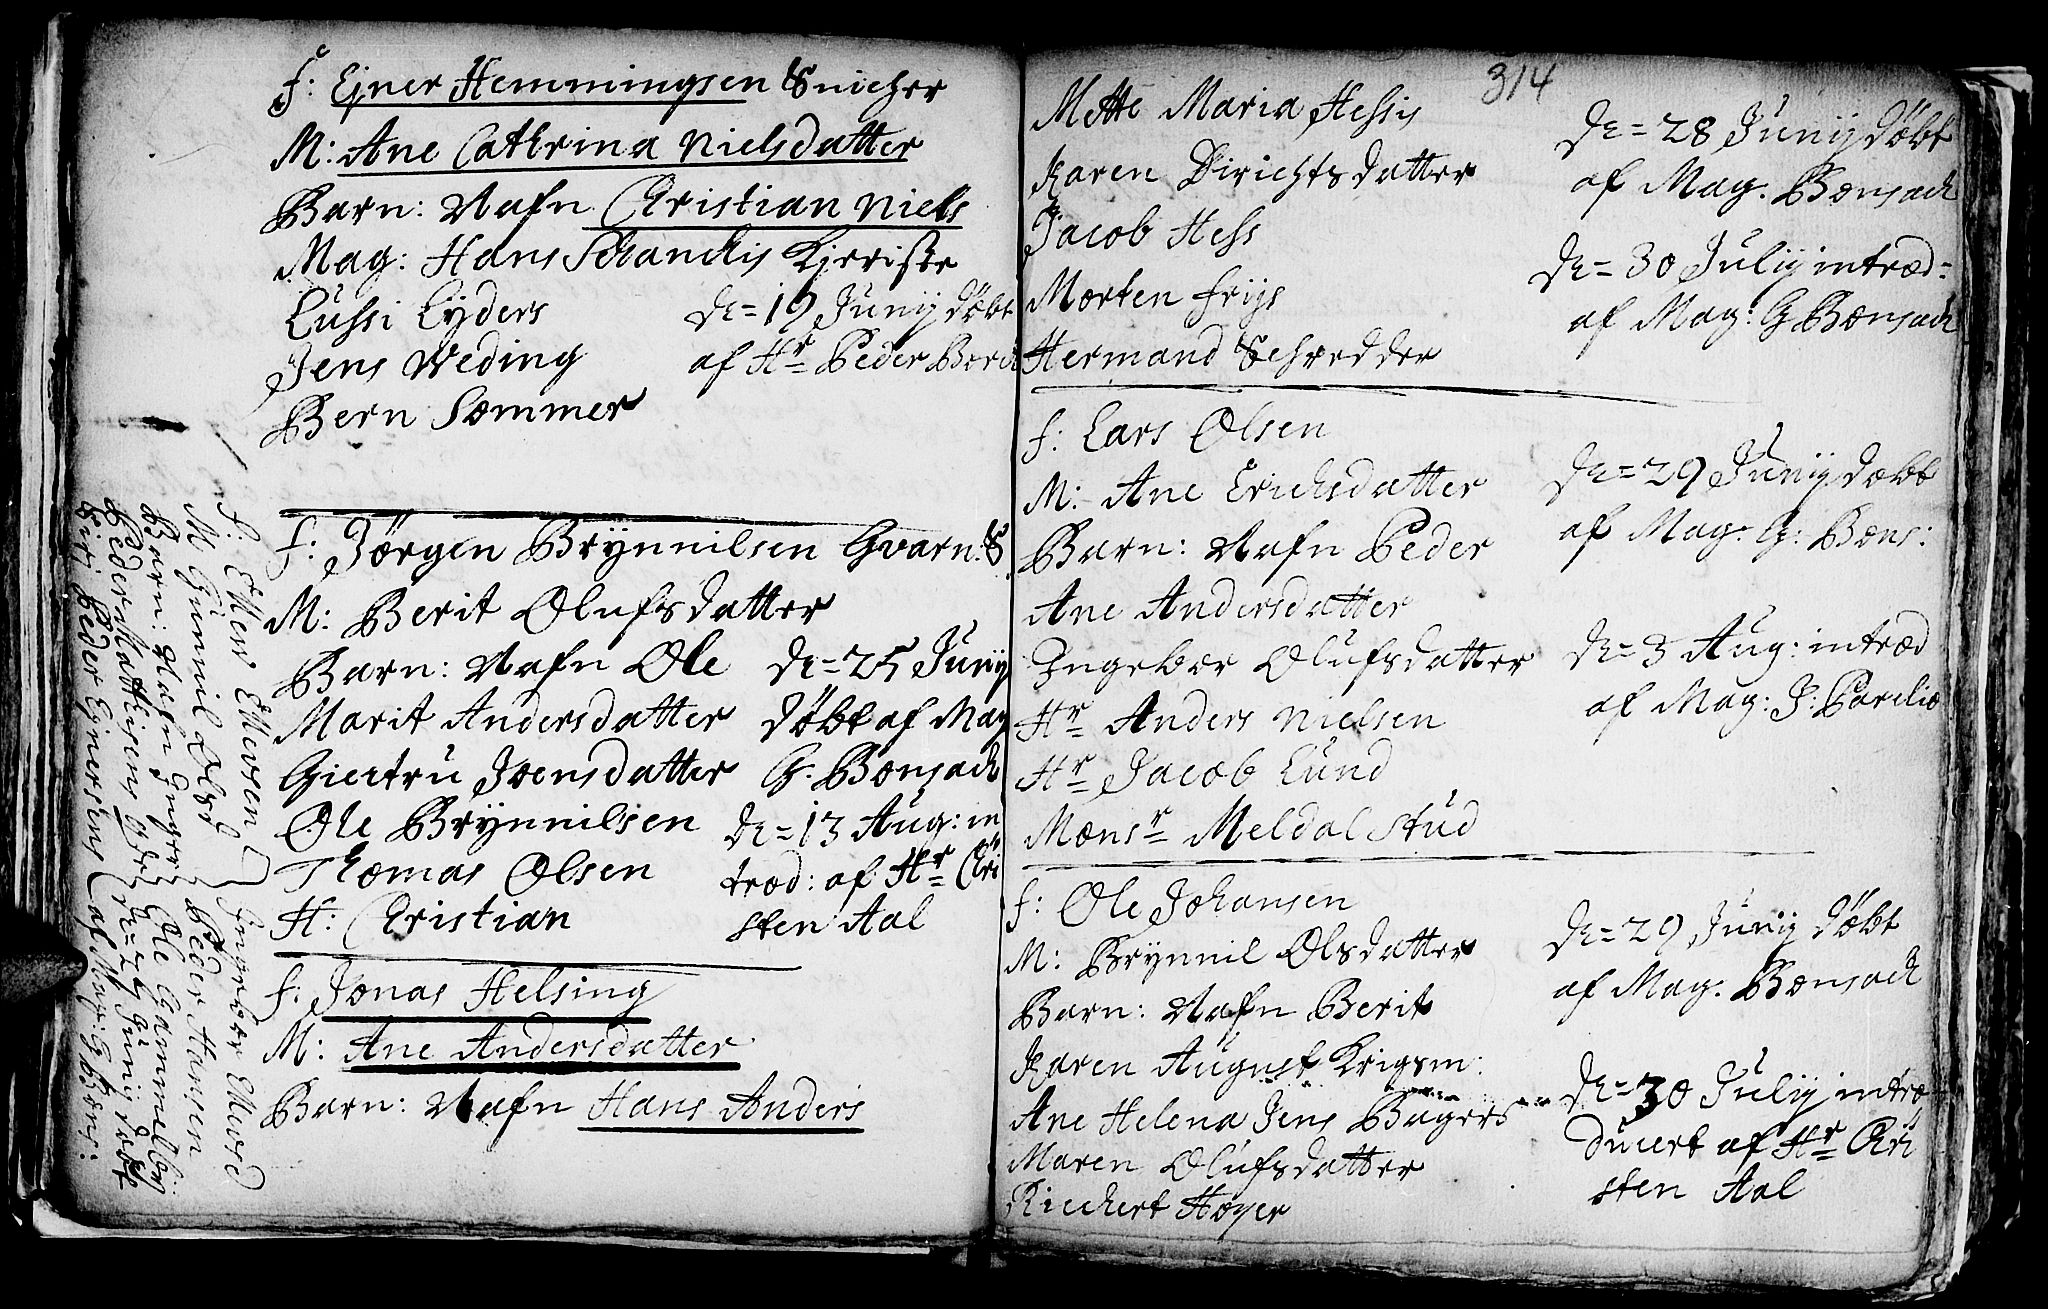 f: Ejner Hemmingsen Snicher
M: Ane Cathrina Nielsdatter
Barn: Nafn Christian Niels
Mag: Hans Schanchis Kieriste
Lussi Lyders
Jens Weding
Bern Sommer
De = 19 Junij døbt
af Hr Peder
f: Jørgen Brynnilsen Gvarn: S
M: Berit Olufsdatter
Barn: Nafn Ole
Marit Andersdatter
Giertru Joensdatter
Ole Brynnilsen
Thomas Olsen
H: Christian
De = 25 Junij
døbt af Mag
G: Bonsach
De = 13 Aug: in
trod: af Hr Chri
sten Aal
f: Jonas Helsing
M: Ane Andersdatter
Barn: Nafn Hans Anders
f: Ellew Ellewsen
M Gunnil Olsd
Barn: Nafn Ingeri
Peder Mathisens
Siri Peder Ejnersens
Peder Hansen
Ole Gammel
De = 24 Junij døbt
af Mag: G Bons:
314
Mette Maria Hessis
Karen Dirichtsdatter
Jacob Hess
Morten friis
Hermand Schredder
De = 28 Junij døbt
af Mag. Bonsach
De = 30 Julij introd:
af Mag: G Bonsach
f: Lars Olsen
M: Ane Erichsdatter
Barn: Nafn Peder
Ane Andersdatter
Ingebor Olufsdatter
Hr Anders Nielsen
Hr Jacob Lund
Monsr Meldal Stud
De = 29 Junij døbt
af Mag: G: Bons:
De = 3 Aug: introd
af Mag: J: Parelio
f: Ole Johansen
M: Brynnil Olsdatter
Barn: Nafn Berit
Karen August Krigsm:
Ane Helena Jens Bagers
Maren Olufsdatter
Riechert Høyer
De = 29 Junij døbt
af Mag. Bonsach
De = 30 Julij intro
ducert af Hr Chri
sten Aal